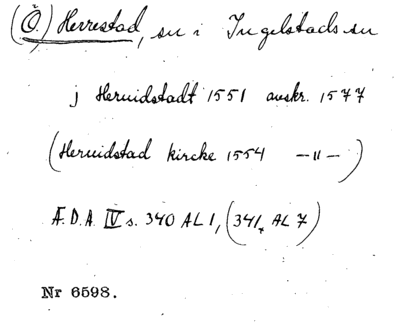 (Ö.) Herrestad, sn i Ingelstads sn
j Heruidstadt 1551 avskr. 1577
(Heruidstad kircke 1554 —"—)
Æ.D.A. IV s. 340 AL 1, (341, AL 7)
Nr 6598.